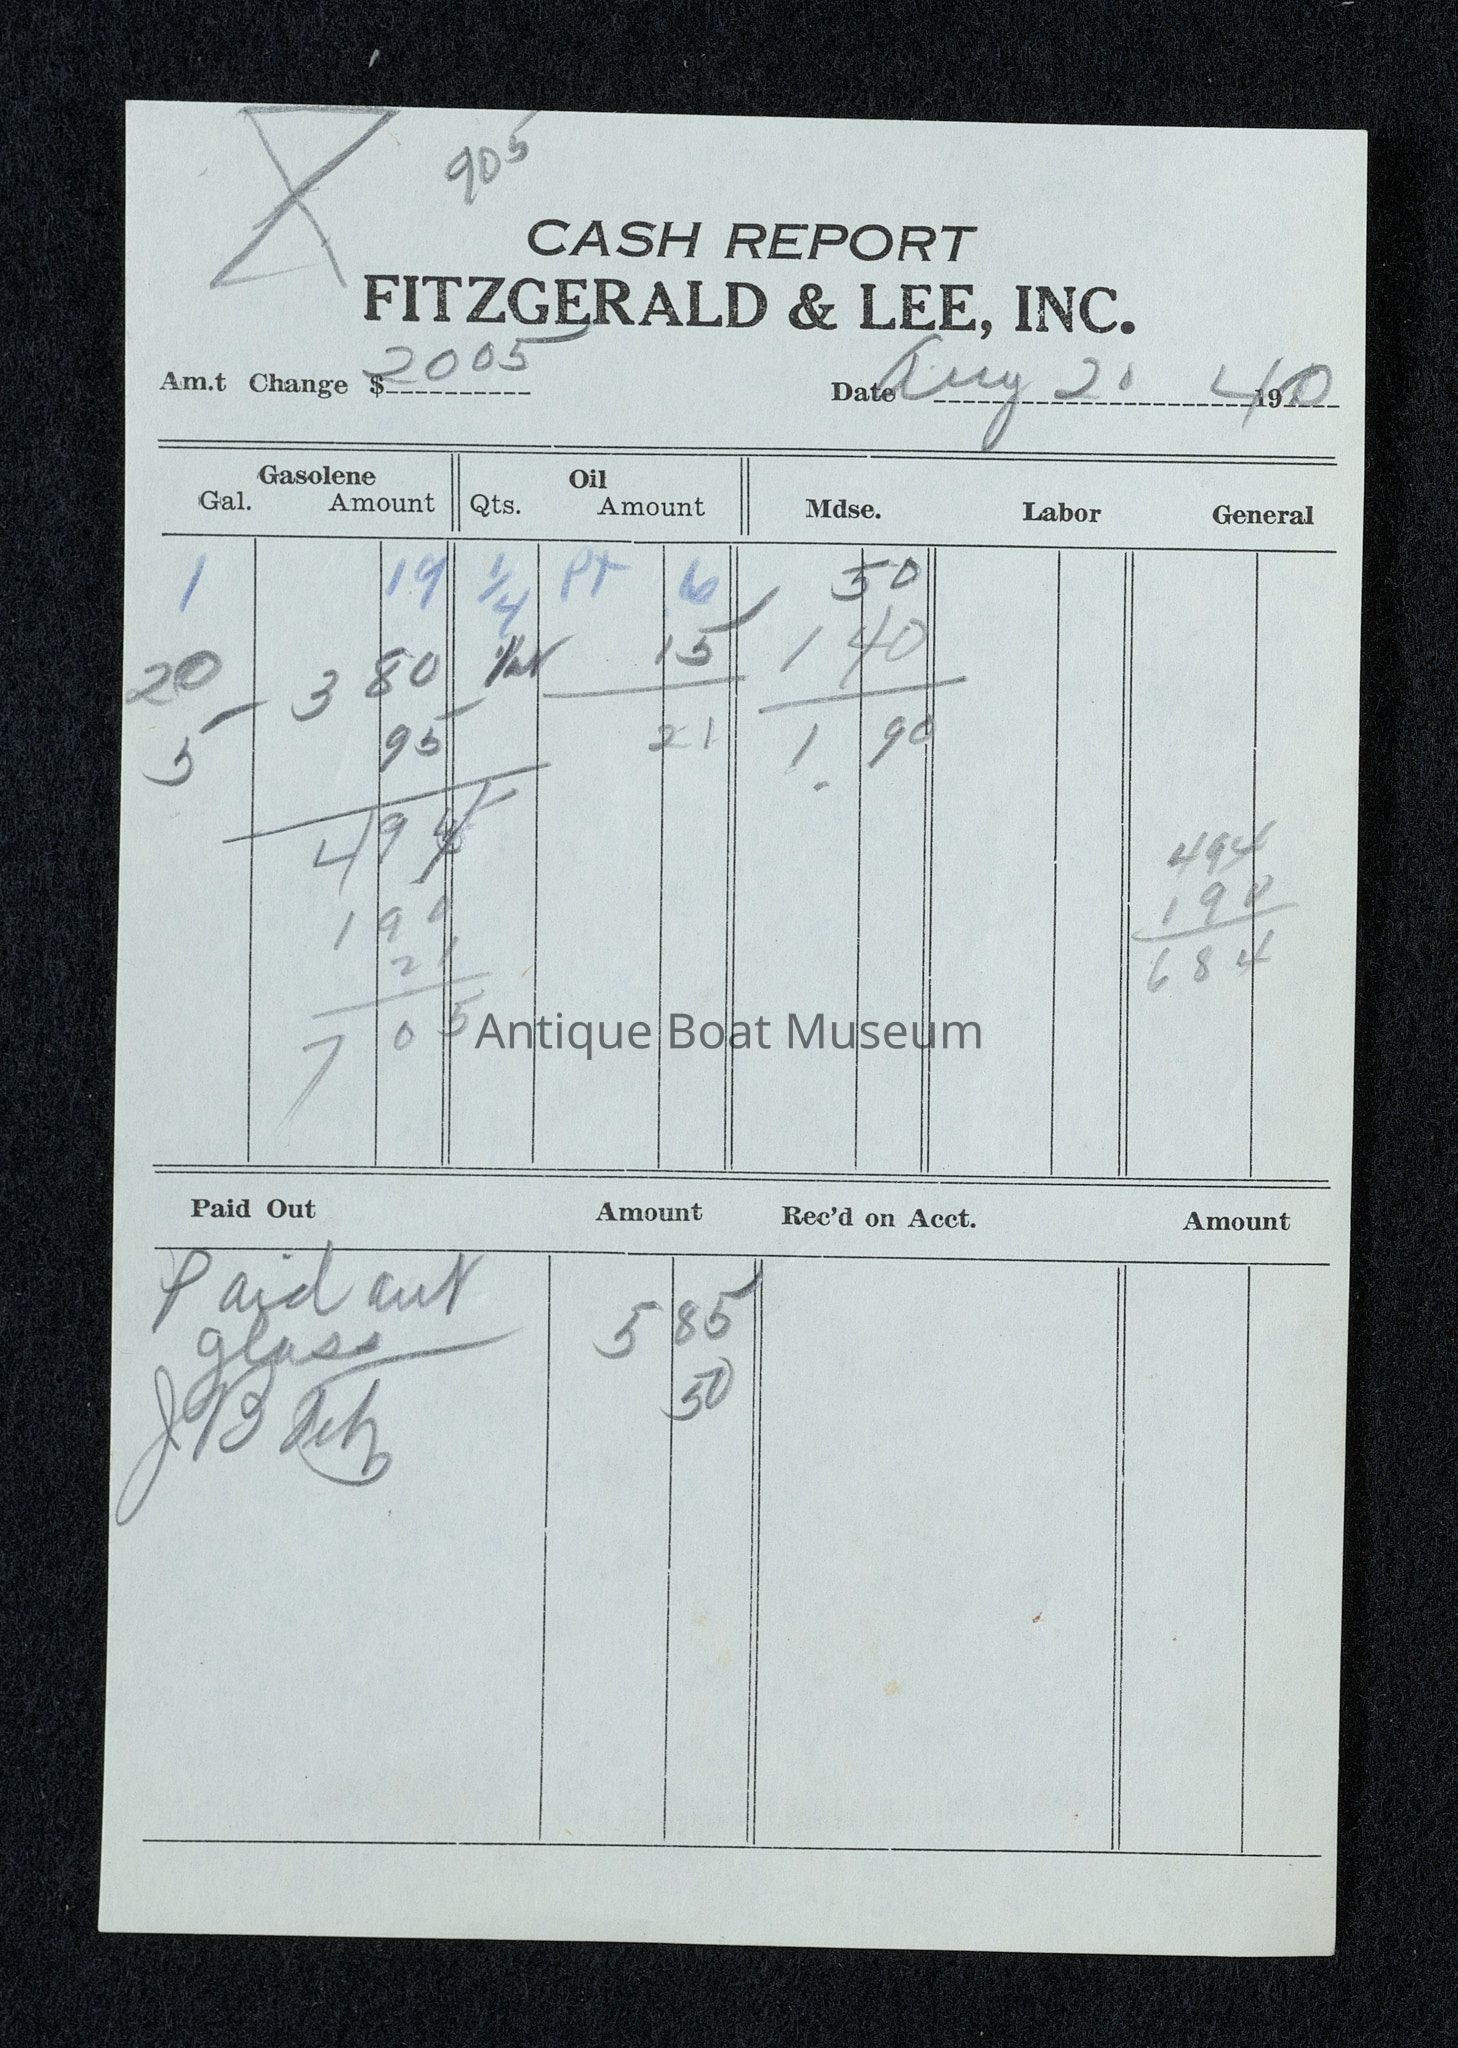 905
CASH REPORT
FITZGERALD & LEE, INC.
Am.t Change $ 2005
Date Aug 20 1940
Gasolene Oil
Gal. Amount Qts. Amount Mdse. Labor General
1 19 1/4 Pt 6 50
20 3 80 15 1 40
5 95 21 1. 90
4 94
1 90
21
7 05
494
190
684
Antique Boat Museum
Paid Out Amount Rec'd on Acct. Amount
Paid out
glass 5 85
J B 50